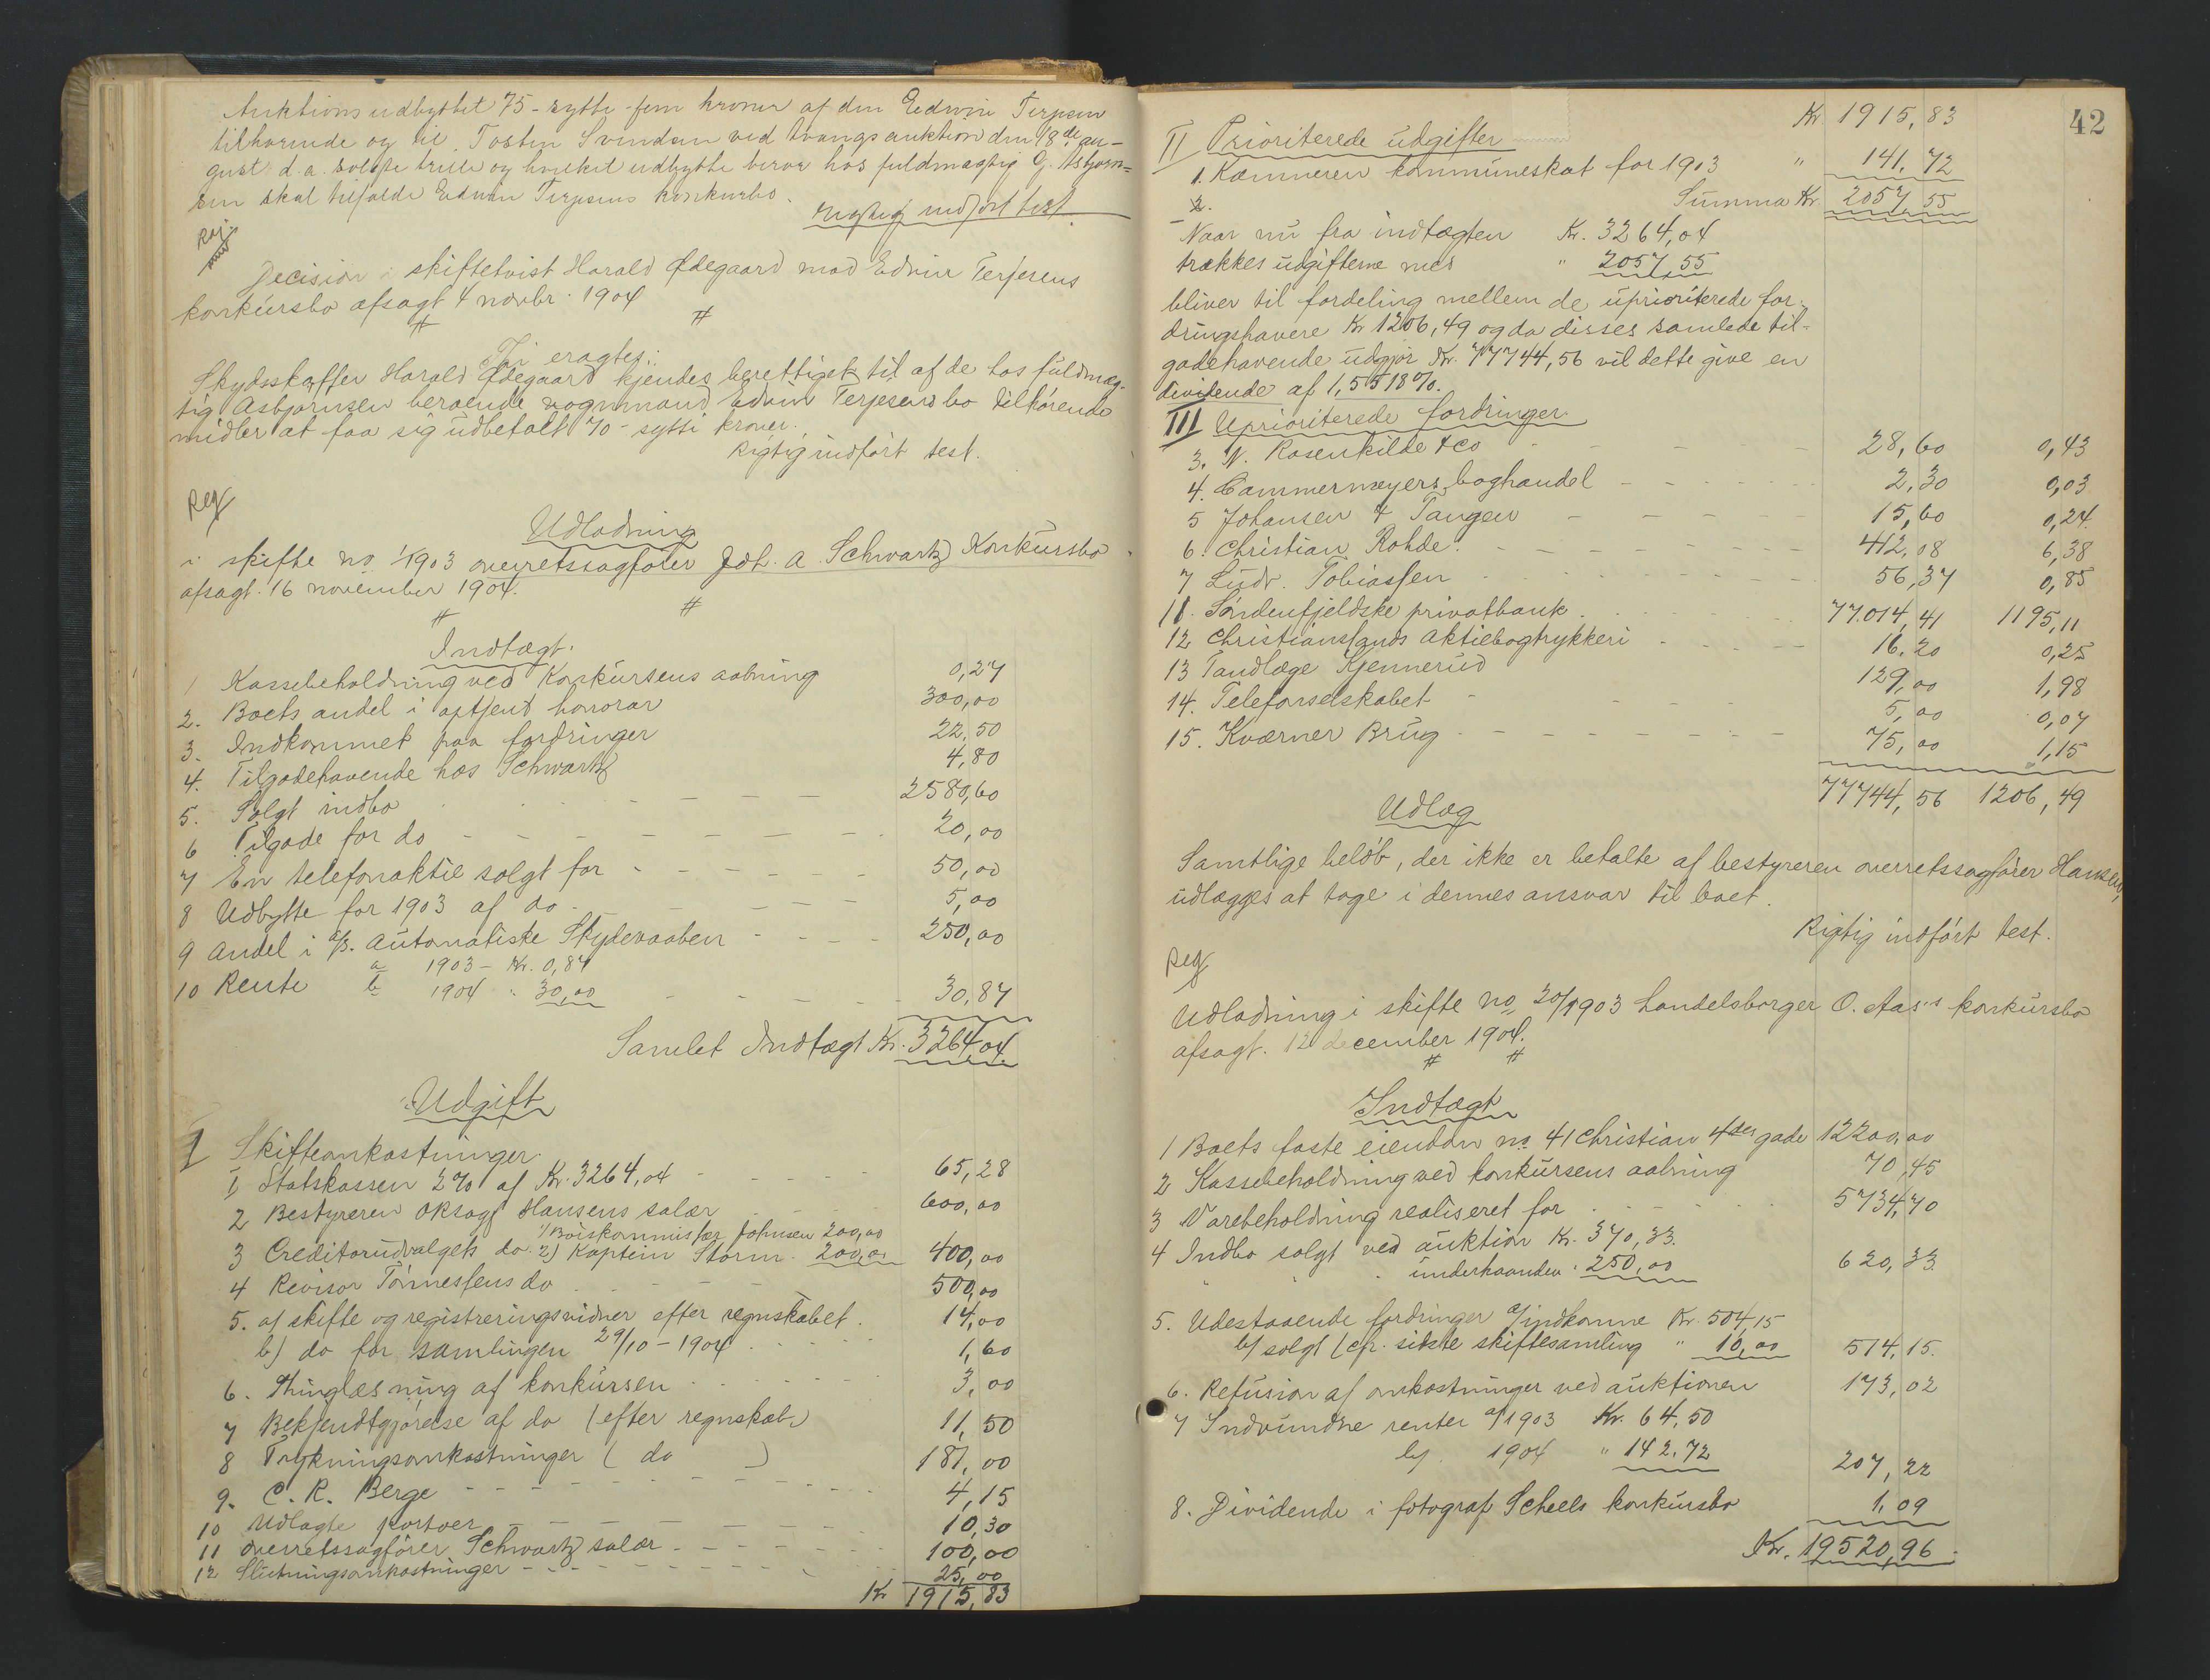 Auktionsudbyttet 75 - sytti fem kroner af den Edwin Terjesen
tilhørende og til Tosten Svendsen ved tvangsauktion den 18de au-
gust d. a. solgte trille og hvilket udbytte beror hos fuldmægtig G. Asbjørn=
sen skal tilfalde Edwin Terjesens konkursbo.
Rigtig indført test.
Reg
Decision i skiftetvist Harald Ødegaard mod Edvin Terjesens
konkursbo afsagt 4 novbr. 1904
# #
Thi eragtes:
Skydsskaffer Harald Ødegaard kjendes berettiget til af de hos fuldmæg-
tig Asbjørnsen beroende vognmand Edvin Terjesens bo tilhørende
midler at faa sig udbetalt 70 - sytti kroner.
Rigtig indført test.
Reg
Udlodning
i skifte no 1/1903 overretssagfører Joh. A. Schwartz Konkursbo
afsagt 16 november 1904.
# #
Indtægt.
1 Kassebeholdning ved Konkursens aabning 0,27
2. Boets andel i optjent honorar 300,00
3. Indkommet paa fordringer 22,50
4. Tilgodehavende hos Schwartz 4,80
5. Solgt indbo 2580,60
6 Tilgode for do 20,00
7 En telefonaktie solgt for 50,00
8 Udbytte for 1903 af do 5,00
9 Andel i A/S. Automatiske Skydevaaben 250,00
10 Rente a 1903 - Kr. 0,87
b 1904 " 30,00 30,87
Samlet Indtægt Kr. 3264,04
Udgift
I Skifteomkostninger
1) Statskassen 2% af Kr. 3264,04 65,28
2 Bestyreren Oksagf Hansens salær 600,00
1) Boiskommissær Johnsen 200,00
3 Creditorudvalgets do 2) Kaptein Storm 200,00 400,00
4 Revisor Tønnessens do 500,00
5. a) skifte og registreringsvidner efter regnskabet. 14,00
b) do for samlingen 29/10 - 1904 1,60
6. Thinglæsning af konkursen 3,00
7 Bekjendtgjørelse af do (efter regnskab) 11,50
8 Trykningsomkostninger ( do ) 181,00
9. C. R. Berge 4,15
10 Udlagte portoer 10,30
11 overretssagfører Schwartz salær 100,00
12 Slutningsomkostninger 25,00
Kr 1915,83
42
Kr 1915,83
II Prioriterede udgifter
1. Kæmneren kommuneskat for 1903 " 141,72
2. Summa Kr. 2057,55
Naar nu fra indtægten Kr. 3264,04
trækkes udgifterne med " 2057,55
bliver til fordeling mellem de uprioriterede for-
dringshavere Kr 1206,49 og da disses samlede til-
godehavende udgjør Kr. 77744,56 vil dette give en
dividende af 1,5518%.
III Uprioriterede fordringer
3. N. Rosenkilde & co 28,60 0,43
4. Cammermeyers boghandel 2,30 0,03
5 Johansen & Tangen 15,60 0,24
6. Christian Rohde. 412,08 6,38
7 Ludv. Tobiassen 56,37 0,85
11. Søndenfjeldske privatbank 77.014,41 1195,11
12 Christianssands Aktiebogtrykkeri 16,20 0,25
13 Tandlæge Kjennerud 129,00 1,98
14. Telefonselskabet 5,00 0,07
15. Kværner Brug 75,00 1,15
77744,56 1206,49
Udlæg
Samtlige beløb, der ikke er betalte af bestyreren overretssagfører Hansen,
udlægges at tage i dennes ansvar til boet.
Rigtig indført test.
Reg
Udlodning i skifte no 20/1903 handelsborger O. Aas's konkursbo
afsagt. 12 december 1904.
# #
Indtægt
1 Boets faste eiendom no. 41 Christian 4des gade 12200,00
2 Kassebeholdning ved konkursens aabning 70,45
3 Varebeholdning realiseret for 5734,70
4 Indbo solgt ved auktion Kr. 370,33.
" " " underhaanden " 250,00 620,33
5. Udestaaende fordringer a/ indkomne Kr. 504,15
b/ solgt (cfr. sidste skiftesamling " 10,00 514,15.
6. Refusion af omkostninger ved auktionen 173,02
7 Indvundne renter a/ 1903 Kr. 64,50
b/ 1904 " 142.72 207,22
8. Dividende i fotograf Scheels konkursbo 1,09
Kr. 19520,96